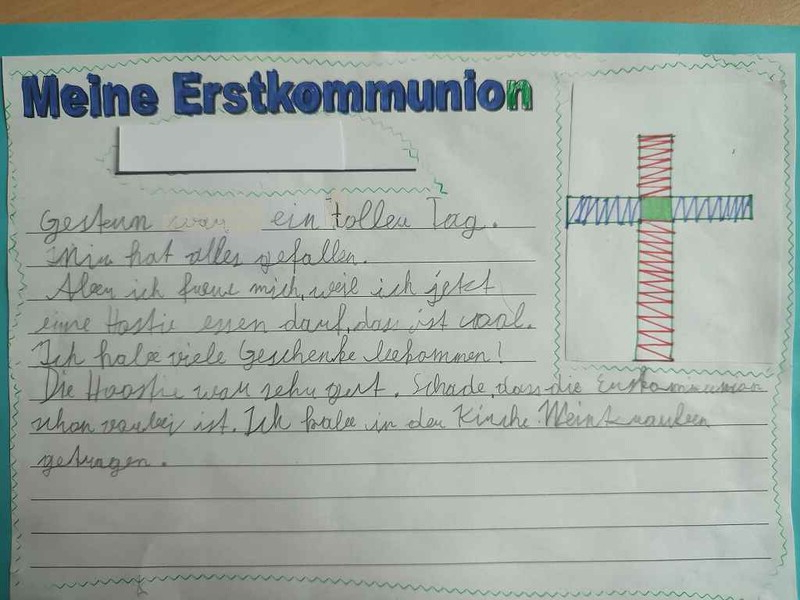 Meine Erstkommunion
Gestern war ein toller Tag.
Mir hat alles gefallen.
Aber ich freue mich, weil ich jetzt
eine Hostie essen darf, das ist cool.
Ich habe viele Geschenke bekommen!
Die Hoostie war sehr gut. Schade, dass die Erstkommunion
schon vorbei ist. Ich habe in der Kirche Weintrauben
getragen.